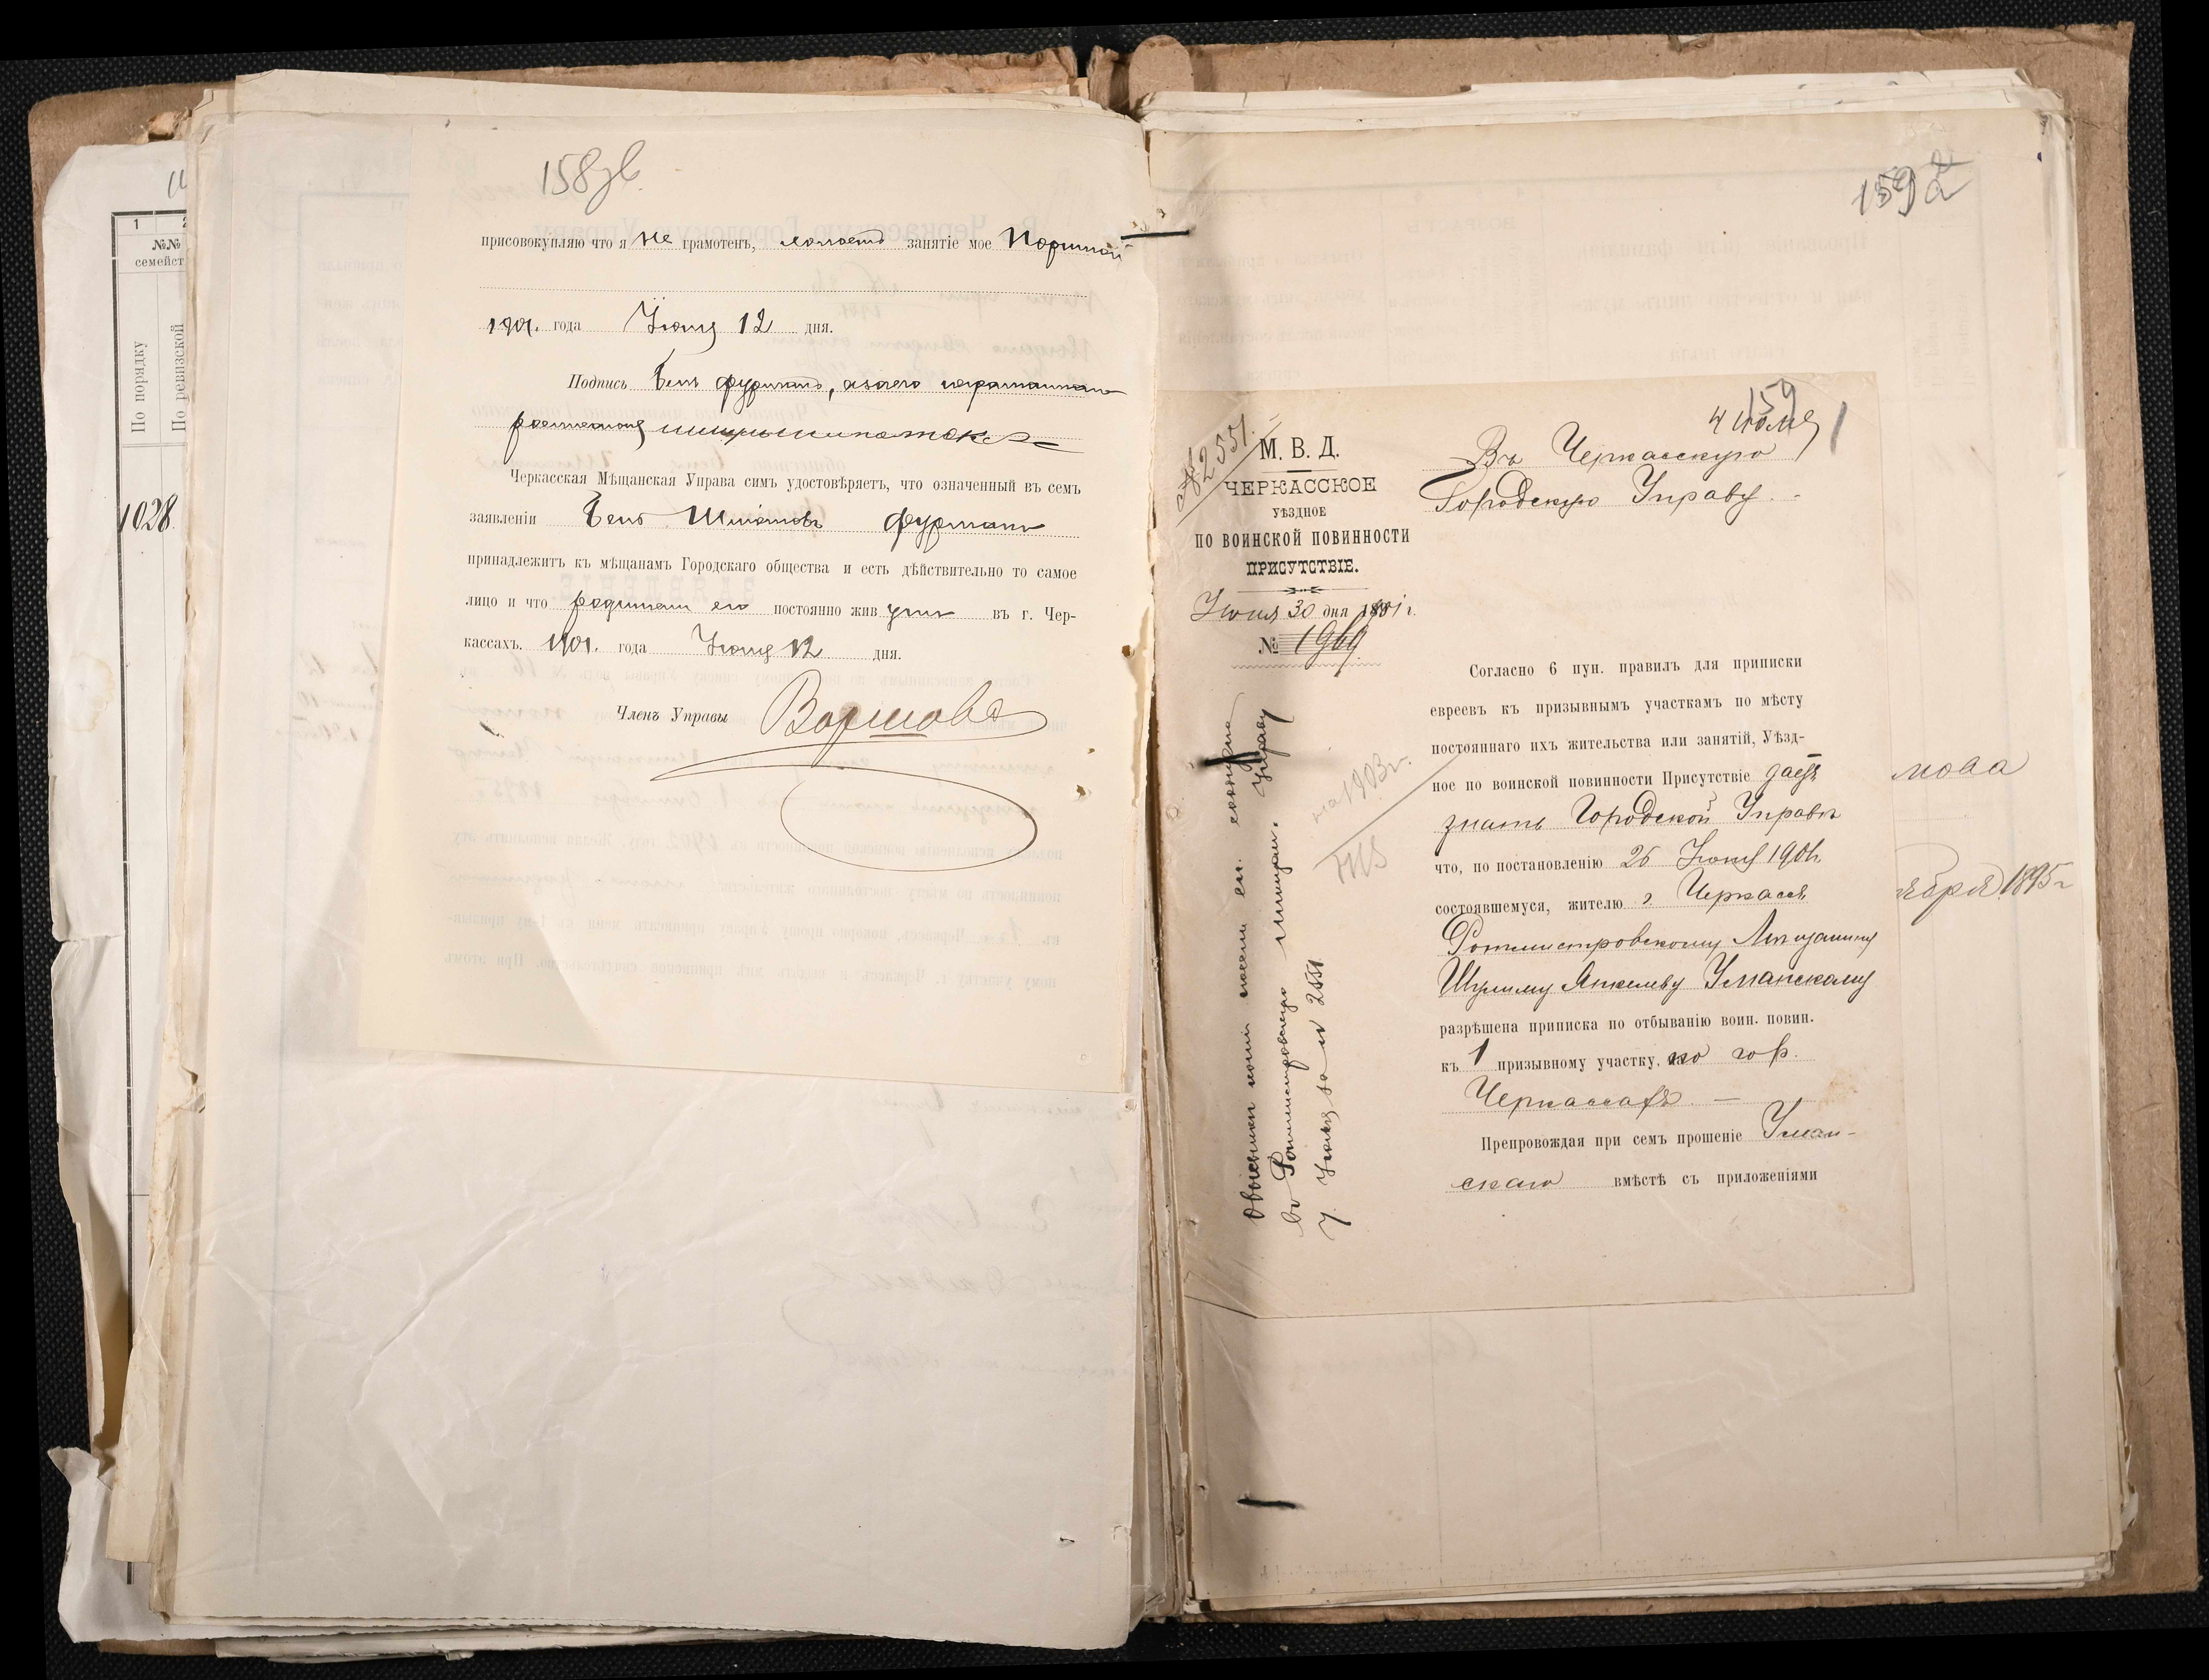 158 зв.
присовокупляю что я не грамотенъ, холостъ занятіе мое Портной
1901. года Іюня 12 дня.
Подпись Бень Фурманъ, а за него неграмотнаго
росписался
Черкасская Мѣщанская Управа симъ удостовѣряетъ, что означенный въ семъ
заявленіи Бень Шмоновъ Фурманъ
принадлежитъ къ мѣщанамъ Городскаго общества и есть дѣйствительно то самое
лицо и что родители его постоянно живутъ въ г. Чер-
кассахъ. 1901. года Іюня 12 дня.
Членъ Управы
1 2
№№
семейст
По порядку
По ревизской
1028
159 а
159
4 Іюля
№ 2551.
М. В. Д.
ЧЕРКАССКОЕ
УѢЗДНОЕ
ПО ВОИНСКОЙ ПОВИННОСТИ
ПРИСУТСТВІЕ.
Іюня 30 дня 1901 г.
№ 1969
Въ Черкасскую
Городскую Управу.
Согласно 6 пун. правилъ для приписки
евреевъ къ призывнымъ участкамъ по мѣсту
постояннаго ихъ жительства или занятій, Уѣзд-
ное по воинской повинности Присутствіе даетъ
знать Городской Управѣ
что, по постановленію 26 Іюня 1901 г.
состоявшемуся, жителю г. Черкассъ
Ротмистровскому Мѣщанину
Шулиму Янкелеву Уманскому
разрѣшена приписка по отбыванію воин. повин.
къ 1 призывному участку, по гор.
Черкассахъ. —
Препровождая при семъ прошеніе Уман-
скаго вмѣстѣ съ приложеніями
на 1903 г.
въ Ротмистровскую мѣщан. Управу
7 Іюля за № 2551
мова
ября 1895 г